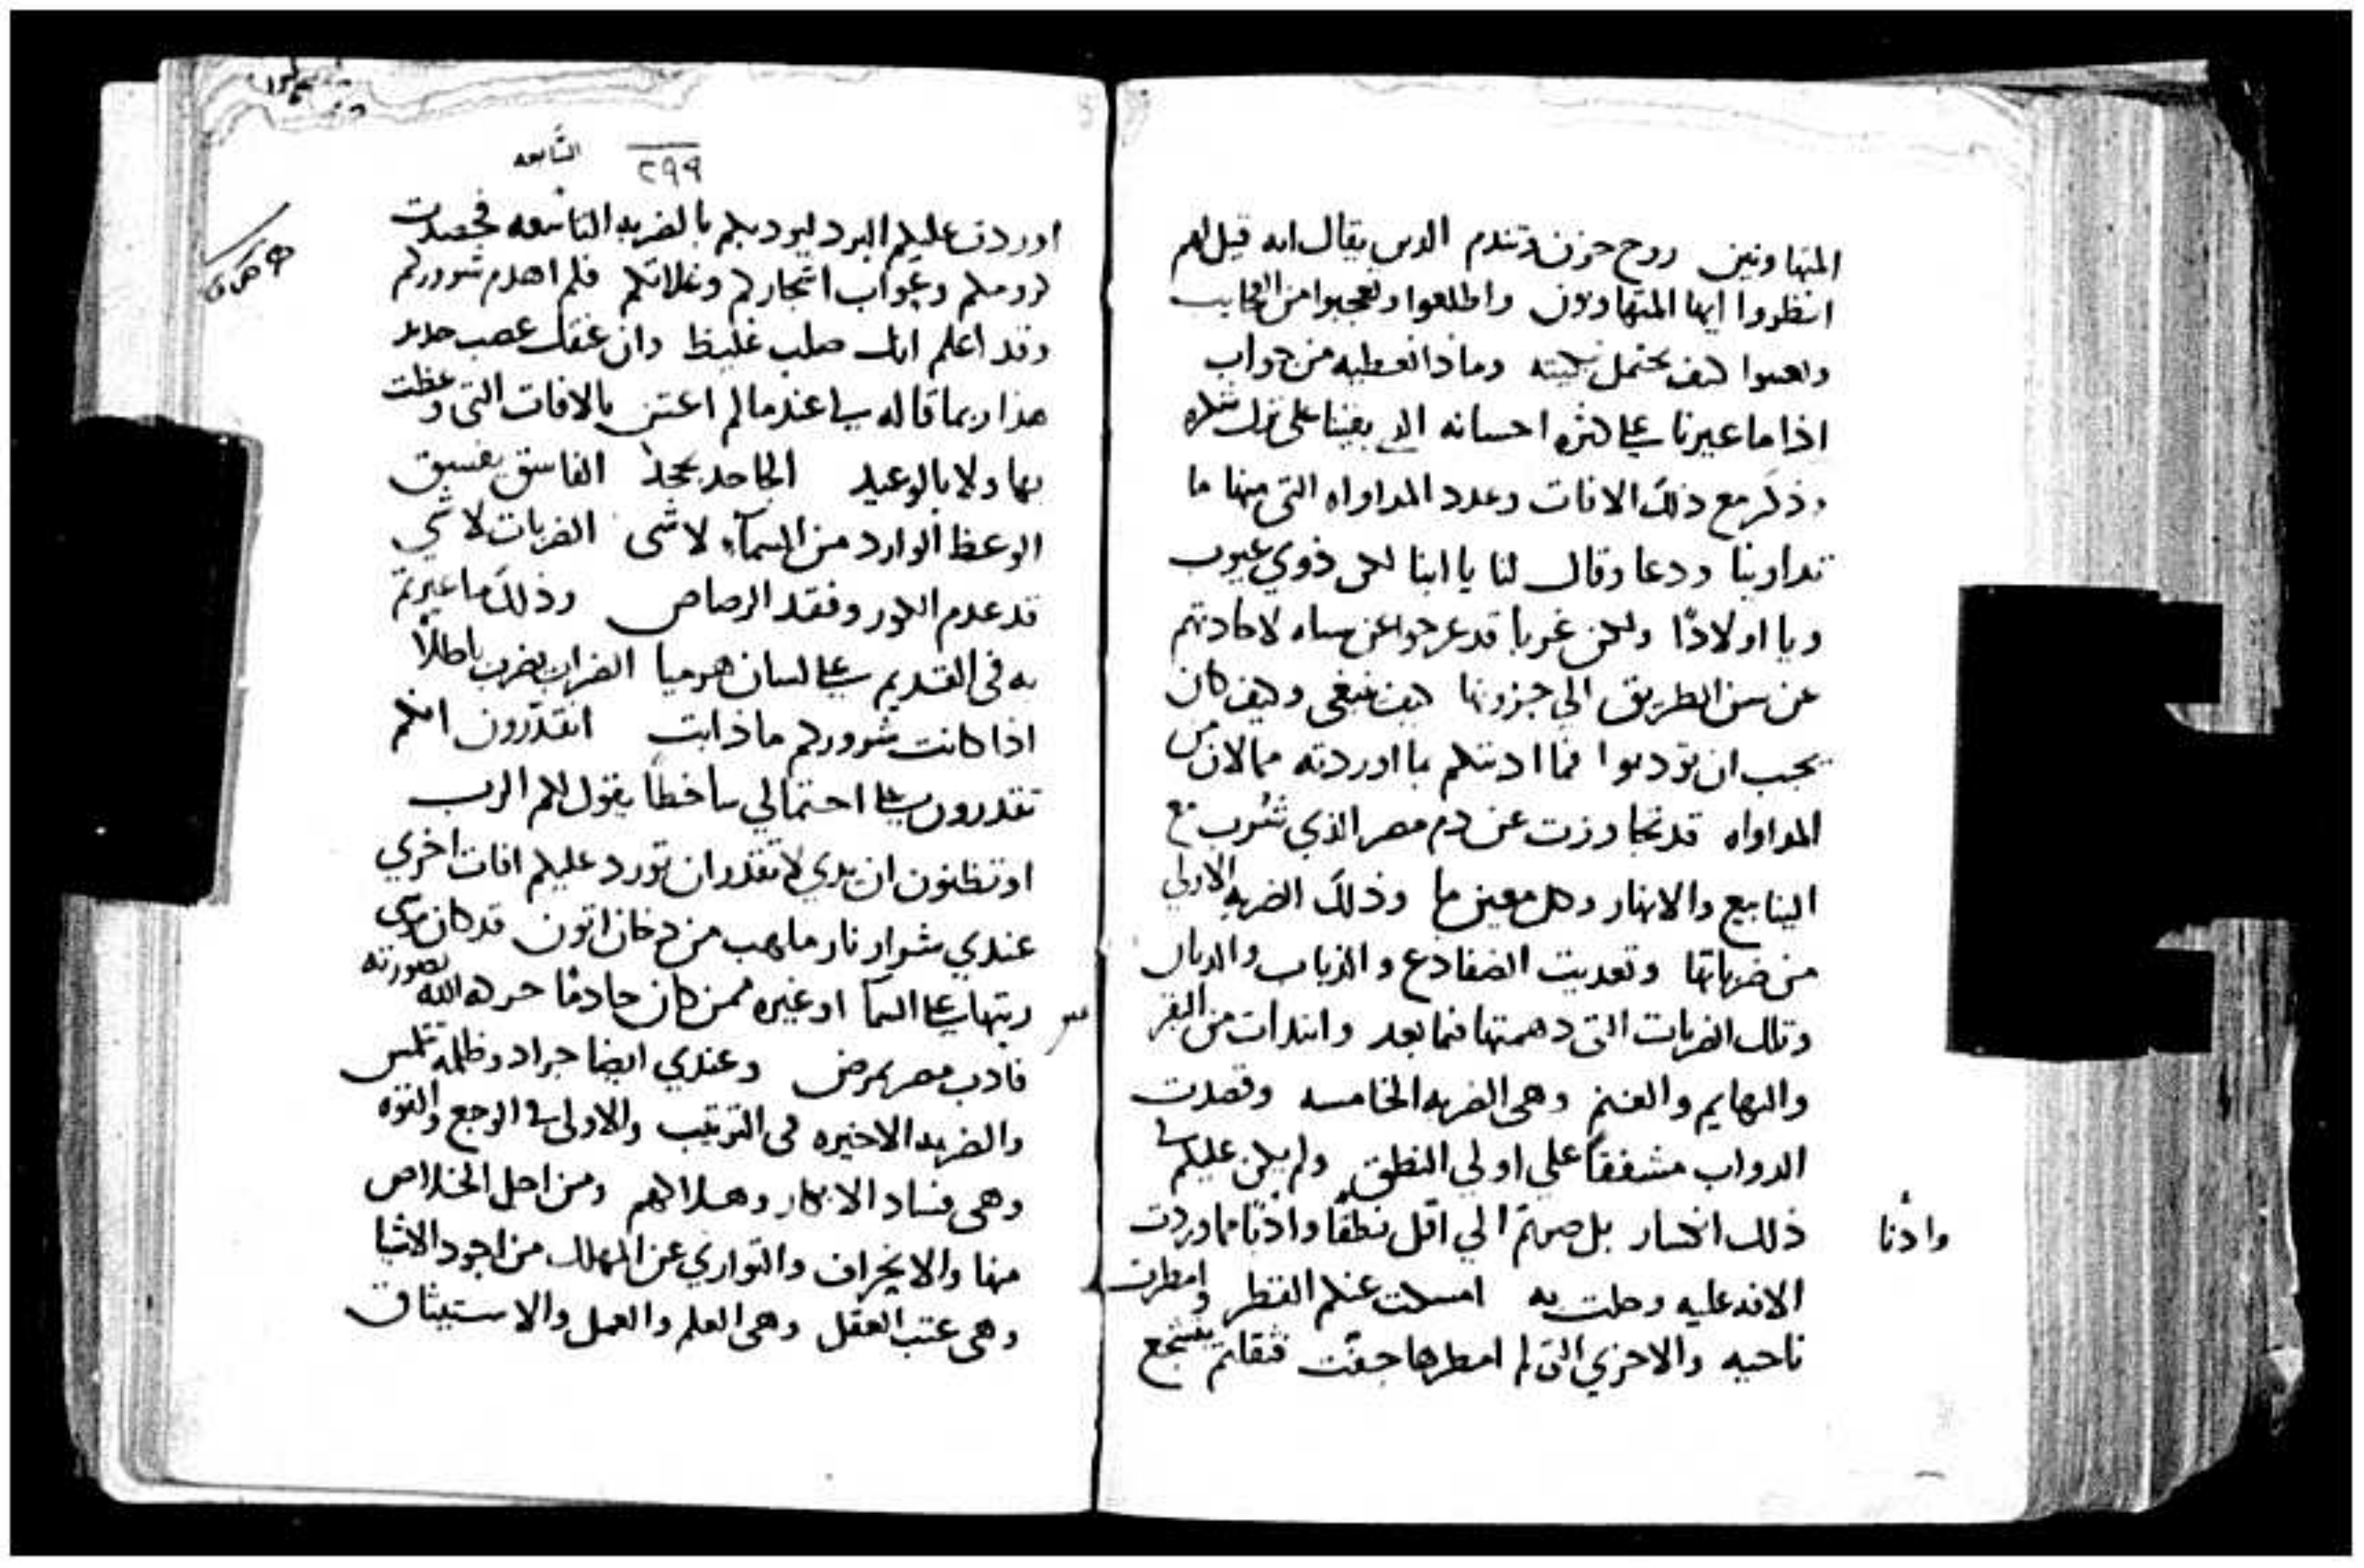 المتهاونين روح حزن وتندم الدين يقال انه قيل لهم
انظروا ايها المتهاونون واطلعوا وتعجبوا من العجايب
كيف تحتمل وماذا نعطيه من جواب
اذا ما عيرنا على كثره احسانه الي بقينا على ترك شكره
وذكر مع ذلك الافات وعدد المداواه التي منها ما
تداوينا ودعا وقال لنا يا ابنا لكن ذوي عيوب
ويا اولادًا ولكن غربا قد عرجوا عن
عن سنن الطريق الي حزونها كيف ينبغي وكيف كان
يجب ان تودبوا فما ادبتكم بما اوردته من
المداواه قد تجاوزت عن دم مصر الذي شرب مع
الينابيع والانهار وكل معين ما وذلك الضربه الاولي
من ضرباتها وتعديت الضفادع والذباب
وتلك الضربات التي دهمتها فيما بعد وابتدات من البقر
والبهايم والغنم وهي الضربه الخامسه وقصدت
الدواب مشفقاً علي اولي النطق ولم يكن عليكم في
ذلك انكسار بل صرتم الي اقل نطقًا وادبًا مما وردت
وادبًا
الافه عليه وحلت به امسكت عنكم القطر وامطرت
ناحيه والاخري التي لم امطرها جفت فقلتم نتشجع
٢٩٩
التاسعه
اوردت عليكم البرد ليودبكم بالضربه التاسعه فحصدت
كرومكم وغواب اشجاركم وغلاتكم فلم اهدم شروركم
وقد اعلم انك صلب غليظ وان عنقك عصب حديد
هذا ربما قاله لي عندما لم اعتن بالافات التي وعظت
بها ولا بالوعيد الجاحد يجحد الفاسق يفسق
الوعظ الوارد من السماء لا شي الضربات لا شي
قد عدم الكور وفقد الرصاص وذلك ما عيرتم
به في القديم على لسان هرميا الضراب يضرب باطلاً
اذا كانت شروركم ما ذابت اتقدرون انكم
تقدرون على احتمالي ساخطاً يقول لكم الرب
او تظنون ان يدي لا تقدر ان تورد عليكم افات اخري
عندي شرار نار ما يهب من دخان اتون قد كان موسى
ربتها على السما او غيره ممن كان حادقًا حركه الله بصورته
فادب مصر بمرض وعندي ايضا جراد وظلمه تلمس
والضربه الاخيره في الترتيب والاولى في الوجع والقوه
وهي فساد الابكار وهلاكهم ومن اجل الخلاص
منها والانحراف والتواري عن المهلك من اجود الاشيا
وهي عتب العقل وهي العلم والعمل والاستيثاق